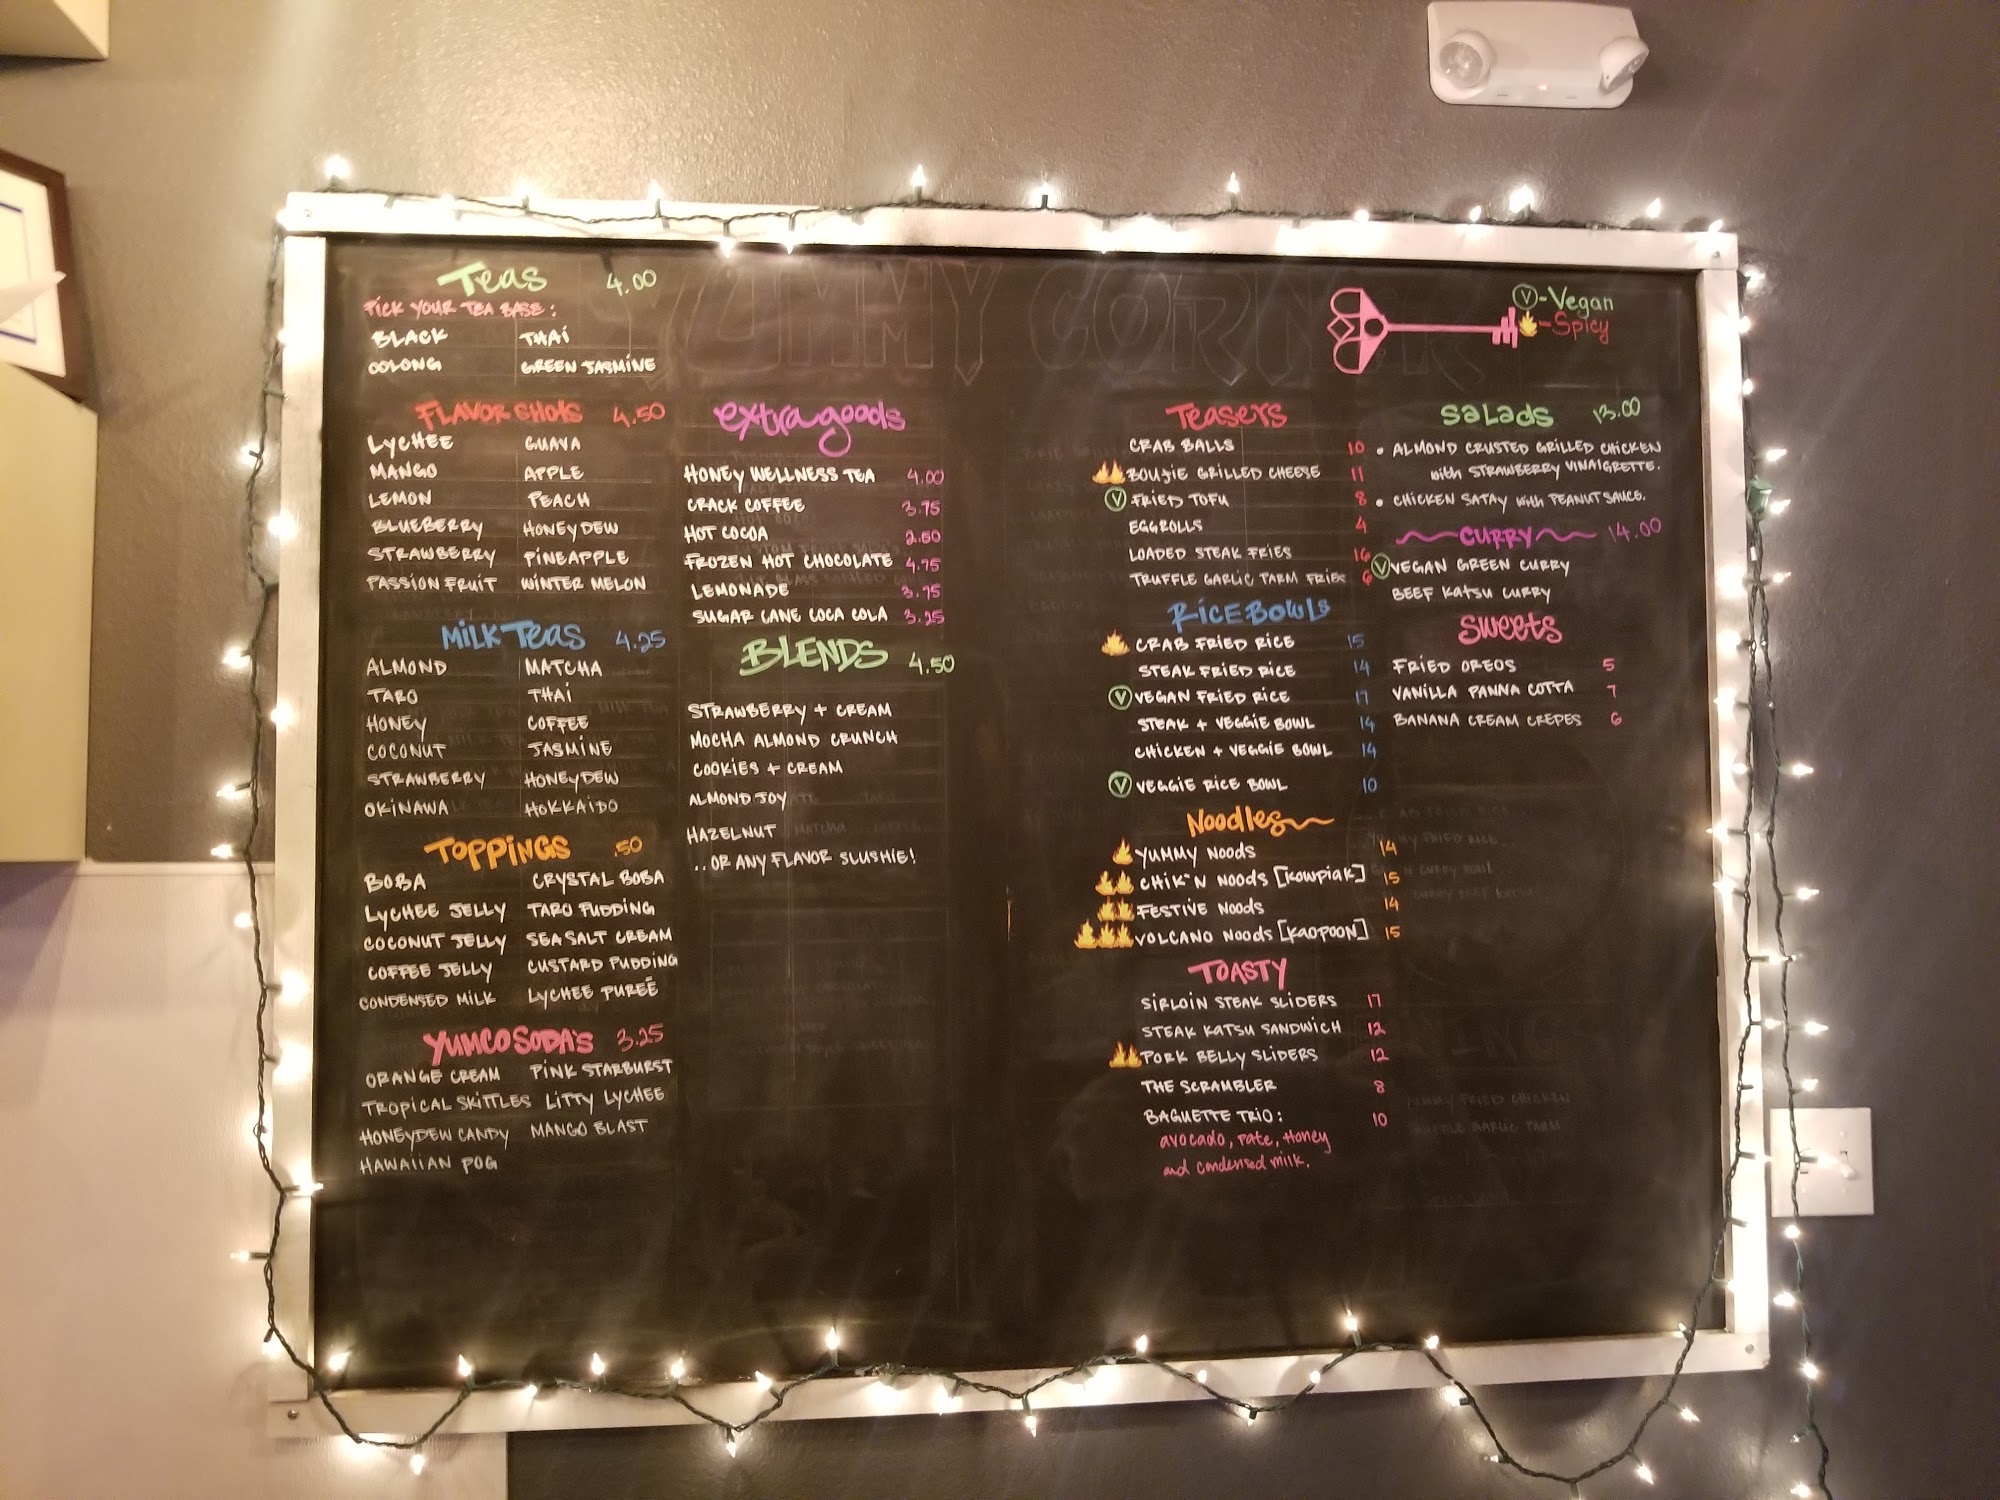 YUMMY CORNER
Teas 4.00
PICK YOUR TEA BASE:
BLACK THAI
OOLONG GREEN JASMINE
FLAVOR SHOTS 4.50
LYCHEE GUAVA
MANGO APPLE
LEMON PEACH
BLUEBERRY HONEYDEW
STRAWBERRY PINEAPPLE
PASSION FRUIT WINTER MELON
MILK TEAS 4.25
ALMOND MATCHA
TARO THAI
HONEY COFFEE
COCONUT JASMINE
STRAWBERRY HONEYDEW
OKINAWA HOKKAIDO
TOPPINGS .50
BOBA CRYSTAL BOBA
LYCHEE JELLY TARO PUDDING
COCONUT JELLY SEA SALT CREAM
COFFEE JELLY CUSTARD PUDDING
CONDENSED MILK LYCHEE PUREÉ
YUMCO SODA'S 3.25
ORANGE CREAM PINK STARBURST
TROPICAL SKITTLES LITTY LYCHEE
HONEYDEW CANDY MANGO BLAST
HAWAIIAN POG
extra goods
HONEY WELLNESS TEA 4.00
CRACK COFFEE 3.75
HOT COCOA 2.50
FROZEN HOT CHOCOLATE 4.75
LEMONADE 3.75
SUGAR CANE COCA COLA 3.25
BLENDS 4.50
STRAWBERRY + CREAM
MOCHA ALMOND CRUNCH
COOKIES + CREAM
ALMOND JOY
HAZELNUT
..OR ANY FLAVOR SLUSHIE!
V-Vegan
-Spicy
TEASERS
CRAB BALLS 10
BOUJIE GRILLED CHEESE 11
V FRIED TOFU 8
EGGROLLS 4
LOADED STEAK FRIES 16
TRUFFLE GARLIC PARM FRIES 6
RICE BOWLS
CRAB FRIED RICE 15
STEAK FRIED RICE 14
V VEGAN FRIED RICE 17
STEAK + VEGGIE BOWL 14
CHICKEN + VEGGIE BOWL 14
V VEGGIE RICE BOWL 10
Noodles
YUMMY NOODS 14
CHIK'N NOODS [KOWPIAK] 15
FESTIVE NOODS 14
VOLCANO NOODS [KAOPOON] 15
TOASTY
SIRLOIN STEAK SLIDERS 17
STEAK KATSU SANDWICH 12
PORK BELLY SLIDERS 12
THE SCRAMBLER 8
BAGUETTE TRIO: 10
avocado, pate, Honey
and condensed milk.
SALADS 13.00
• ALMOND CRUSTED GRILLED CHICKEN
with STRAWBERRY VINAIGRETTE.
• CHICKEN SATAY with PEANUT SAUCE.
CURRY 14.00
V VEGAN GREEN CURRY
BEEF KATSU CURRY
SWEETS
FRIED OREOS 5
VANILLA PANNA COTTA 7
BANANA CREAM CREPES 6